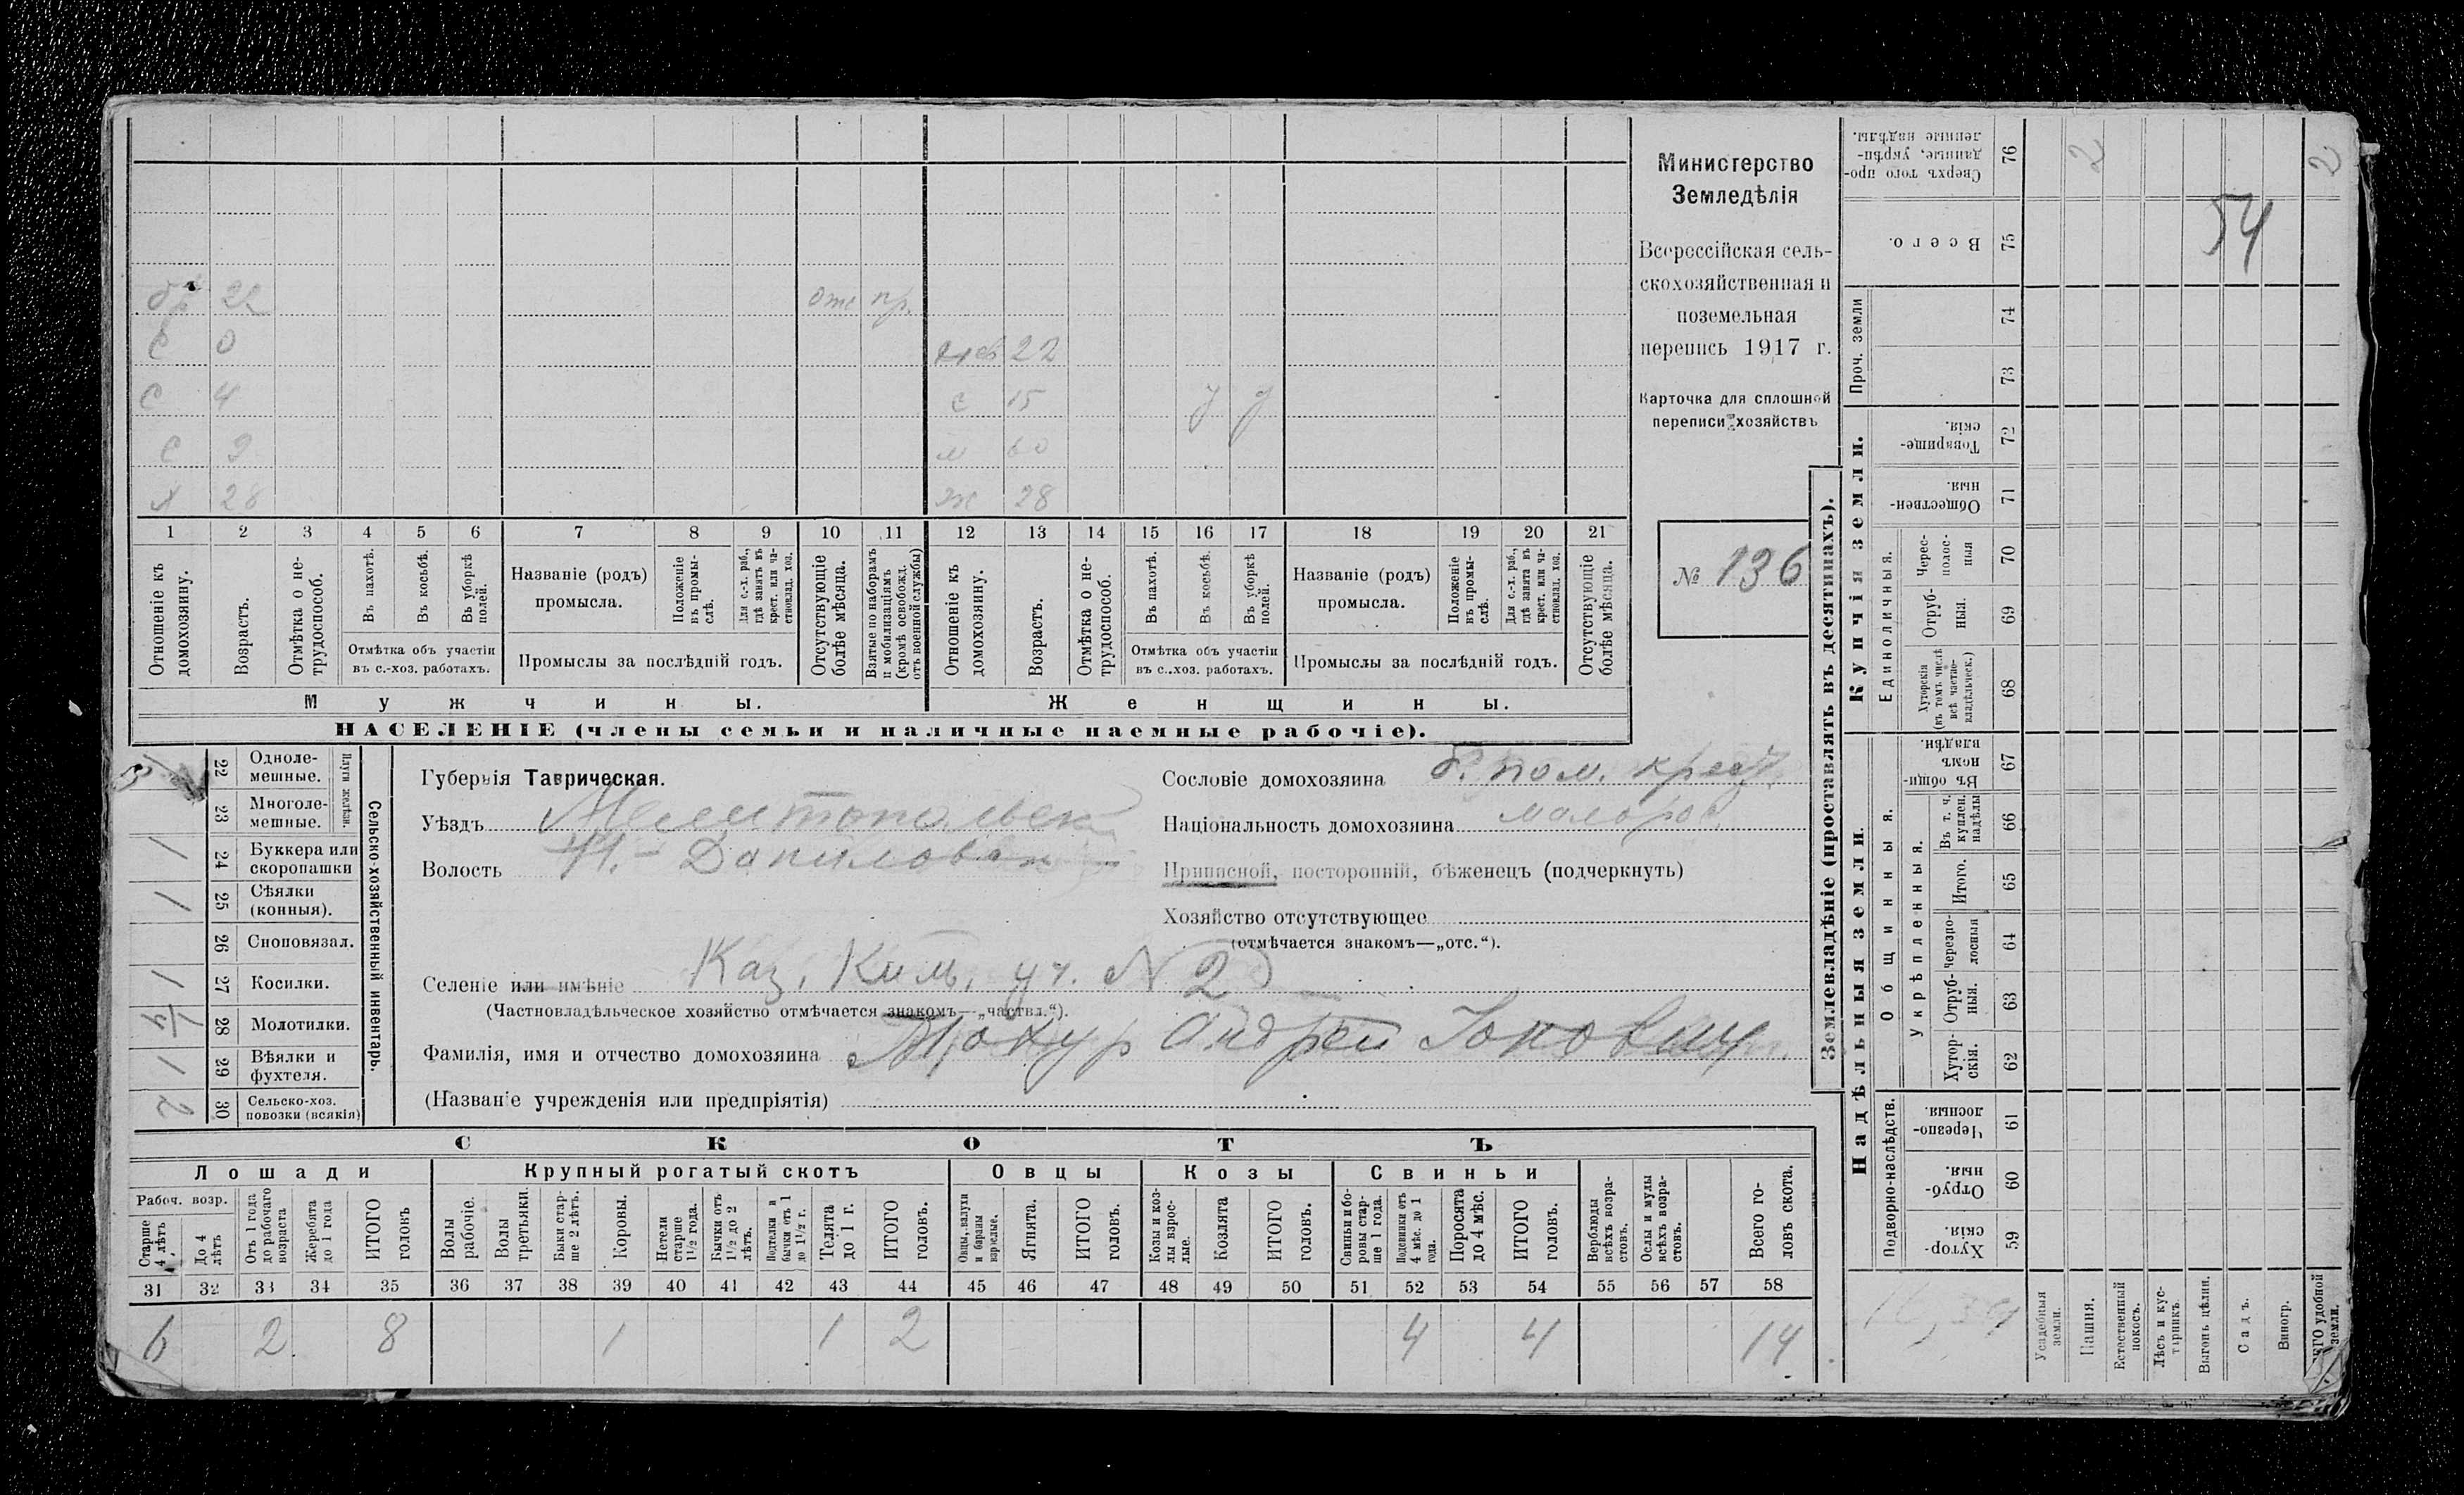 Министерство
Земледѣлія
Всероссійская сель-
скохозяйственная и
поземельная
перепись 1917 г.
Карточка для сплошной
переписи хозяйствъ
№ 136
бр 22 отс пр.
с 0 22
с 4 с 15 у у
с 9 м 60
х 28 ж 28
1 2 3 4 5 6 7 8 9 10 11 12 13 14 15 16 17 18 19 20 21
Отношеніе къ домохозяину.
Возрастъ.
Отмѣтка о не-трудоспособ.
Въ пахотѣ.
Въ косьбѣ.
Въ уборкѣ полей.
Отмѣтка объ участіи
въ с.-хоз. работахъ.
Названіе (родъ)
промысла.
Положеніе въ промы-слѣ.
Для с.-х. раб., гдѣ занятъ въ крест. или ча-стновлад. хоз.
Промыслы за послѣдній годъ.
Отсутствующіе болѣе мѣсяца.
Взятые по наборамъ и мобилизаціямъ (кромѣ освобожд. отъ военной службы)
Отношеніе къ домохозяину.
Возрастъ.
Отмѣтка о не-трудоспособ.
Въ пахотѣ.
Въ косьбѣ.
Въ уборкѣ полей.
Отмѣтка объ участіи
въ с..хоз. работахъ.
Названіе (родъ)
промысла.
Положеніе въ промы-слѣ.
Для с.-х. раб., гдѣ занята въ крест. или ча-стновлад. хоз.
Промыслы за послѣдній годъ.
Отсутствующіе болѣе мѣсяца.
Мужчины.
Женщины.
НАСЕЛЕНІЕ (члены семьи и наличные наемные рабочіе).
Сельско-хозяйственный инвентарь.
Плуги желѣзн.
22 Одноле-мешные.
23 Многоле-мешные.
1 24 Буккера или скоропашки
1 25 Сѣялки (конныя).
26 Сноповязал.
1 27 Косилки.
28 Молотилки.
1 29 Вѣялки и фухтеля.
2 30 Сельско-хоз. повозки (всякія)
Губернія Таврическая.
Уѣздъ Мелитопольск
Волость Н.-Даниловск
Селеніе или имѣніе Каз. Ким. уч. N 2
(Частновладѣльческое хозяйство отмѣчается знакомъ—„частвл.“).
Фамилія, имя и отчество домохозяина Андрей
(Названіе учрежденія или предпріятія)
Сословіе домохозяина б. пом. крест.
Національность домохозяина малорос.
Приписной, посторонній, бѣженецъ (подчеркнуть)
Хозяйство отсутствующее
(отмѣчается знакомъ—„отс.“).
СКОТЪ
Лошади Крупный рогатый скотъ Овцы Козы Свиньи
Рабоч. возр.
Старше 4 лѣтъ
До 4 лѣтъ
Отъ 1 года до рабочаго возраста
Жеребята до 1 года
ИТОГО головъ
Волы рабочіе.
Волы третьяки.
Быки стар-ше 2 лѣтъ.
Коровы.
Нетели старше 1½ года.
Бычки отъ 1½ до 2 лѣтъ.
Подтелки и бычки отъ 1 до 1½ г.
Телята до 1 г.
ИТОГО головъ.
Овцы, валухи и бараны взрослые.
Ягнята.
ИТОГО головъ.
Козы и коз-лы взрос-лые.
Козлята
ИТОГО головъ.
Свиньи и бо-ровы стар-ше 1 года.
Подсвинки отъ 4 мѣс. до 1 года.
Поросята до 4 мѣс.
ИТОГО головъ.
Верблюды всѣхъ возра-стовъ.
Ослы и мулы всѣхъ возра-стовъ.
Всего го-ловъ скота.
31 32 33 34 35 36 37 38 39 40 41 42 43 44 45 46 47 48 49 50 51 52 53 54 55 56 57 58
6 2 8 1 1 2 4 4 14
Землевладѣніе (проставлять въ десятинахъ).
Купчія земли.
Надѣльныя земли.
Сверхъ того про-данные, укрѣп-ленные надѣлы. 76 2 2
Всего. 75 54
Проч. земли 74 73
Товарище-скія. 72
Обществен-ныя. 71
Единоличныя.
Черес-полос-ныя 70
Отруб-ныя. 69
Хуторскія (въ томъ числѣ всѣ частно-владѣльческ.) 68
Общинныя.
Въ общи-номъ владѣн. 67
Укрѣпленныя.
Въ т. ч. куплен. надѣлы 66
Итого. 65
Черезпо-лосныя 64
Отруб-ныя. 63
Хутор-скія. 62
Подворно-наслѣдств.
Черезпо-лосныя. 61
Отруб-ныя. 60
Хутор-скія. 59
Усадебныя земли.
Пашня.
Естественный покосъ.
Лѣсъ и кус-тарникъ.
Выгонъ цѣлин.
Садъ.
Виногр.
удобной земли.